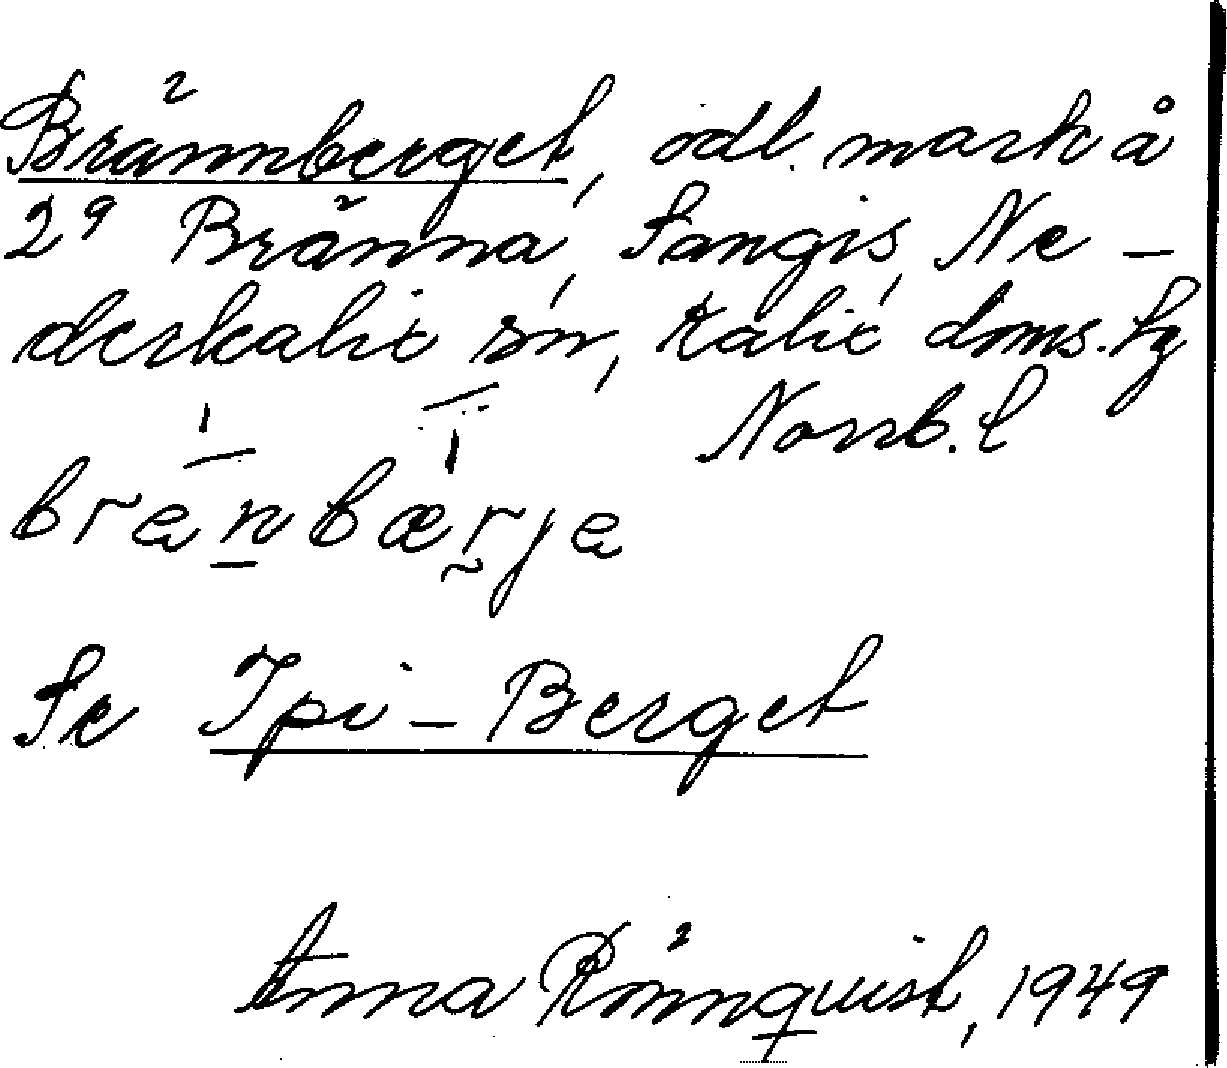 Brännberget, odl. mark å
2⁹ Bränna, Sangis, Ne-
derkalix sn, Kalix doms. fg
Norrb. l
bränbærje
Se Ipi-Berget
Anna Rönnquist, 1949